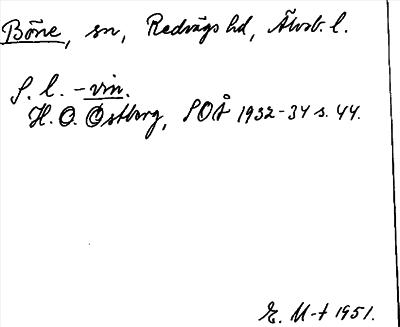 Böne, sn, Redvägs hd, Älvsb. l.
S. l. -vin.
H. O. Østberg, SOÅ 1932-34 s. 44.
E. M-t 1951.